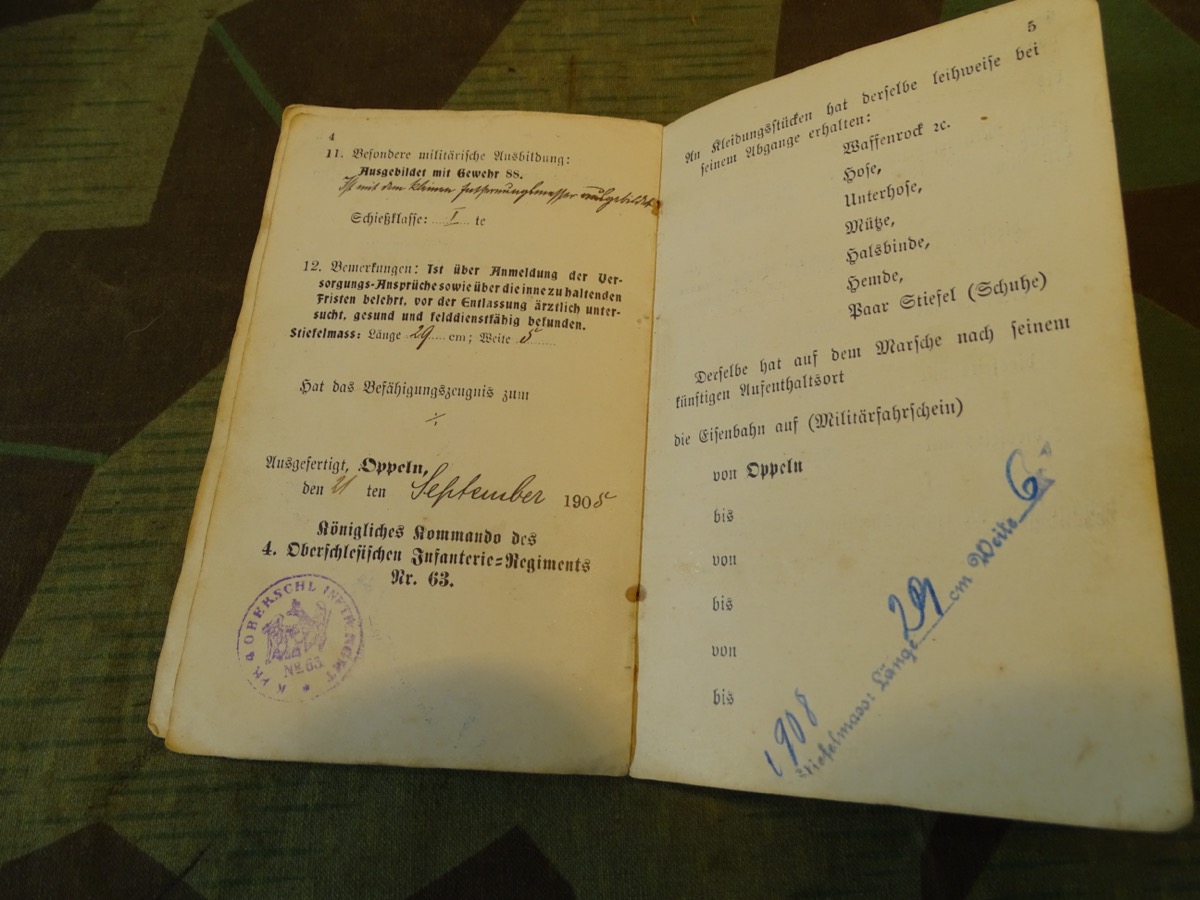 4
11. Besondere militärische Ausbildung:
Ausgebildet mit Gewehr 88.
Ist mit dem kleinen Entfernungsmesser ausgebildet
Schießklasse: I te
12. Bemerkungen: Ist über Anmeldung der Ver-
sorgungs-Ansprüche sowie über die inne zu haltenden
Fristen belehrt, vor der Entlassung ärztlich unter-
sucht, gesund und felddienstfähig befunden.
Stiefelmass: Länge 29 cm; Weite 5
Hat das Befähigungszeugnis zum
÷
Ausgefertigt, Oppeln,
den 21 ten September 1905
Königliches Kommando des
4. Oberschlesischen Infanterie-Regiments
Nr. 63.
K. PR. 4 OBERSCHL INFTR RGMT
No 63
5
An Kleidungsstücken hat derselbe leihweise bei
seinem Abgange erhalten:
Waffenrock ꝛc.
Hose,
Unterhose,
Mütze,
Halsbinde,
Hemde,
Paar Stiefel (Schuhe)
Derselbe hat auf dem Marsche nach seinem
künftigen Aufenthaltsort
die Eisenbahn auf (Militärfahrschein)
von Oppeln
bis
von
bis
von
bis
1908
Stiefelmass: Länge 29 cm Weite 6